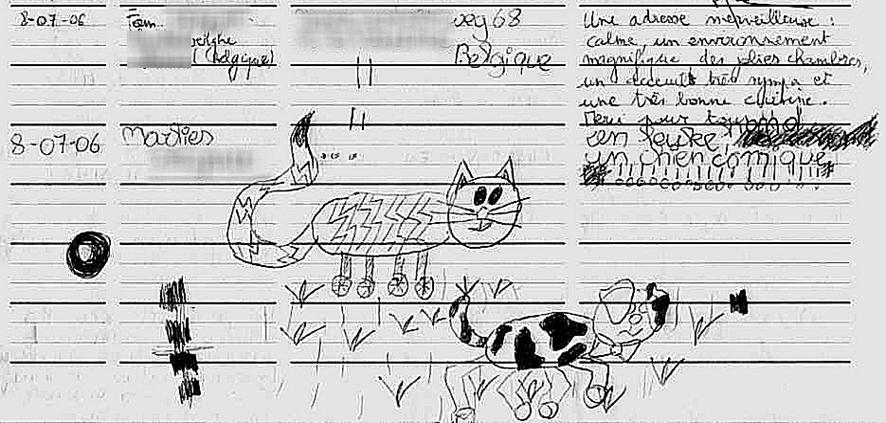 8-07-06 Fam. weg 68
(Belgique) Belgique
Une adresse merveilleuse :
calme, un environnement
magnifique des jolies chambres,
un accueil très sympa et
une très bonne cuisine.
Merci pour tout
8-07-06 Marlies
un chien comique